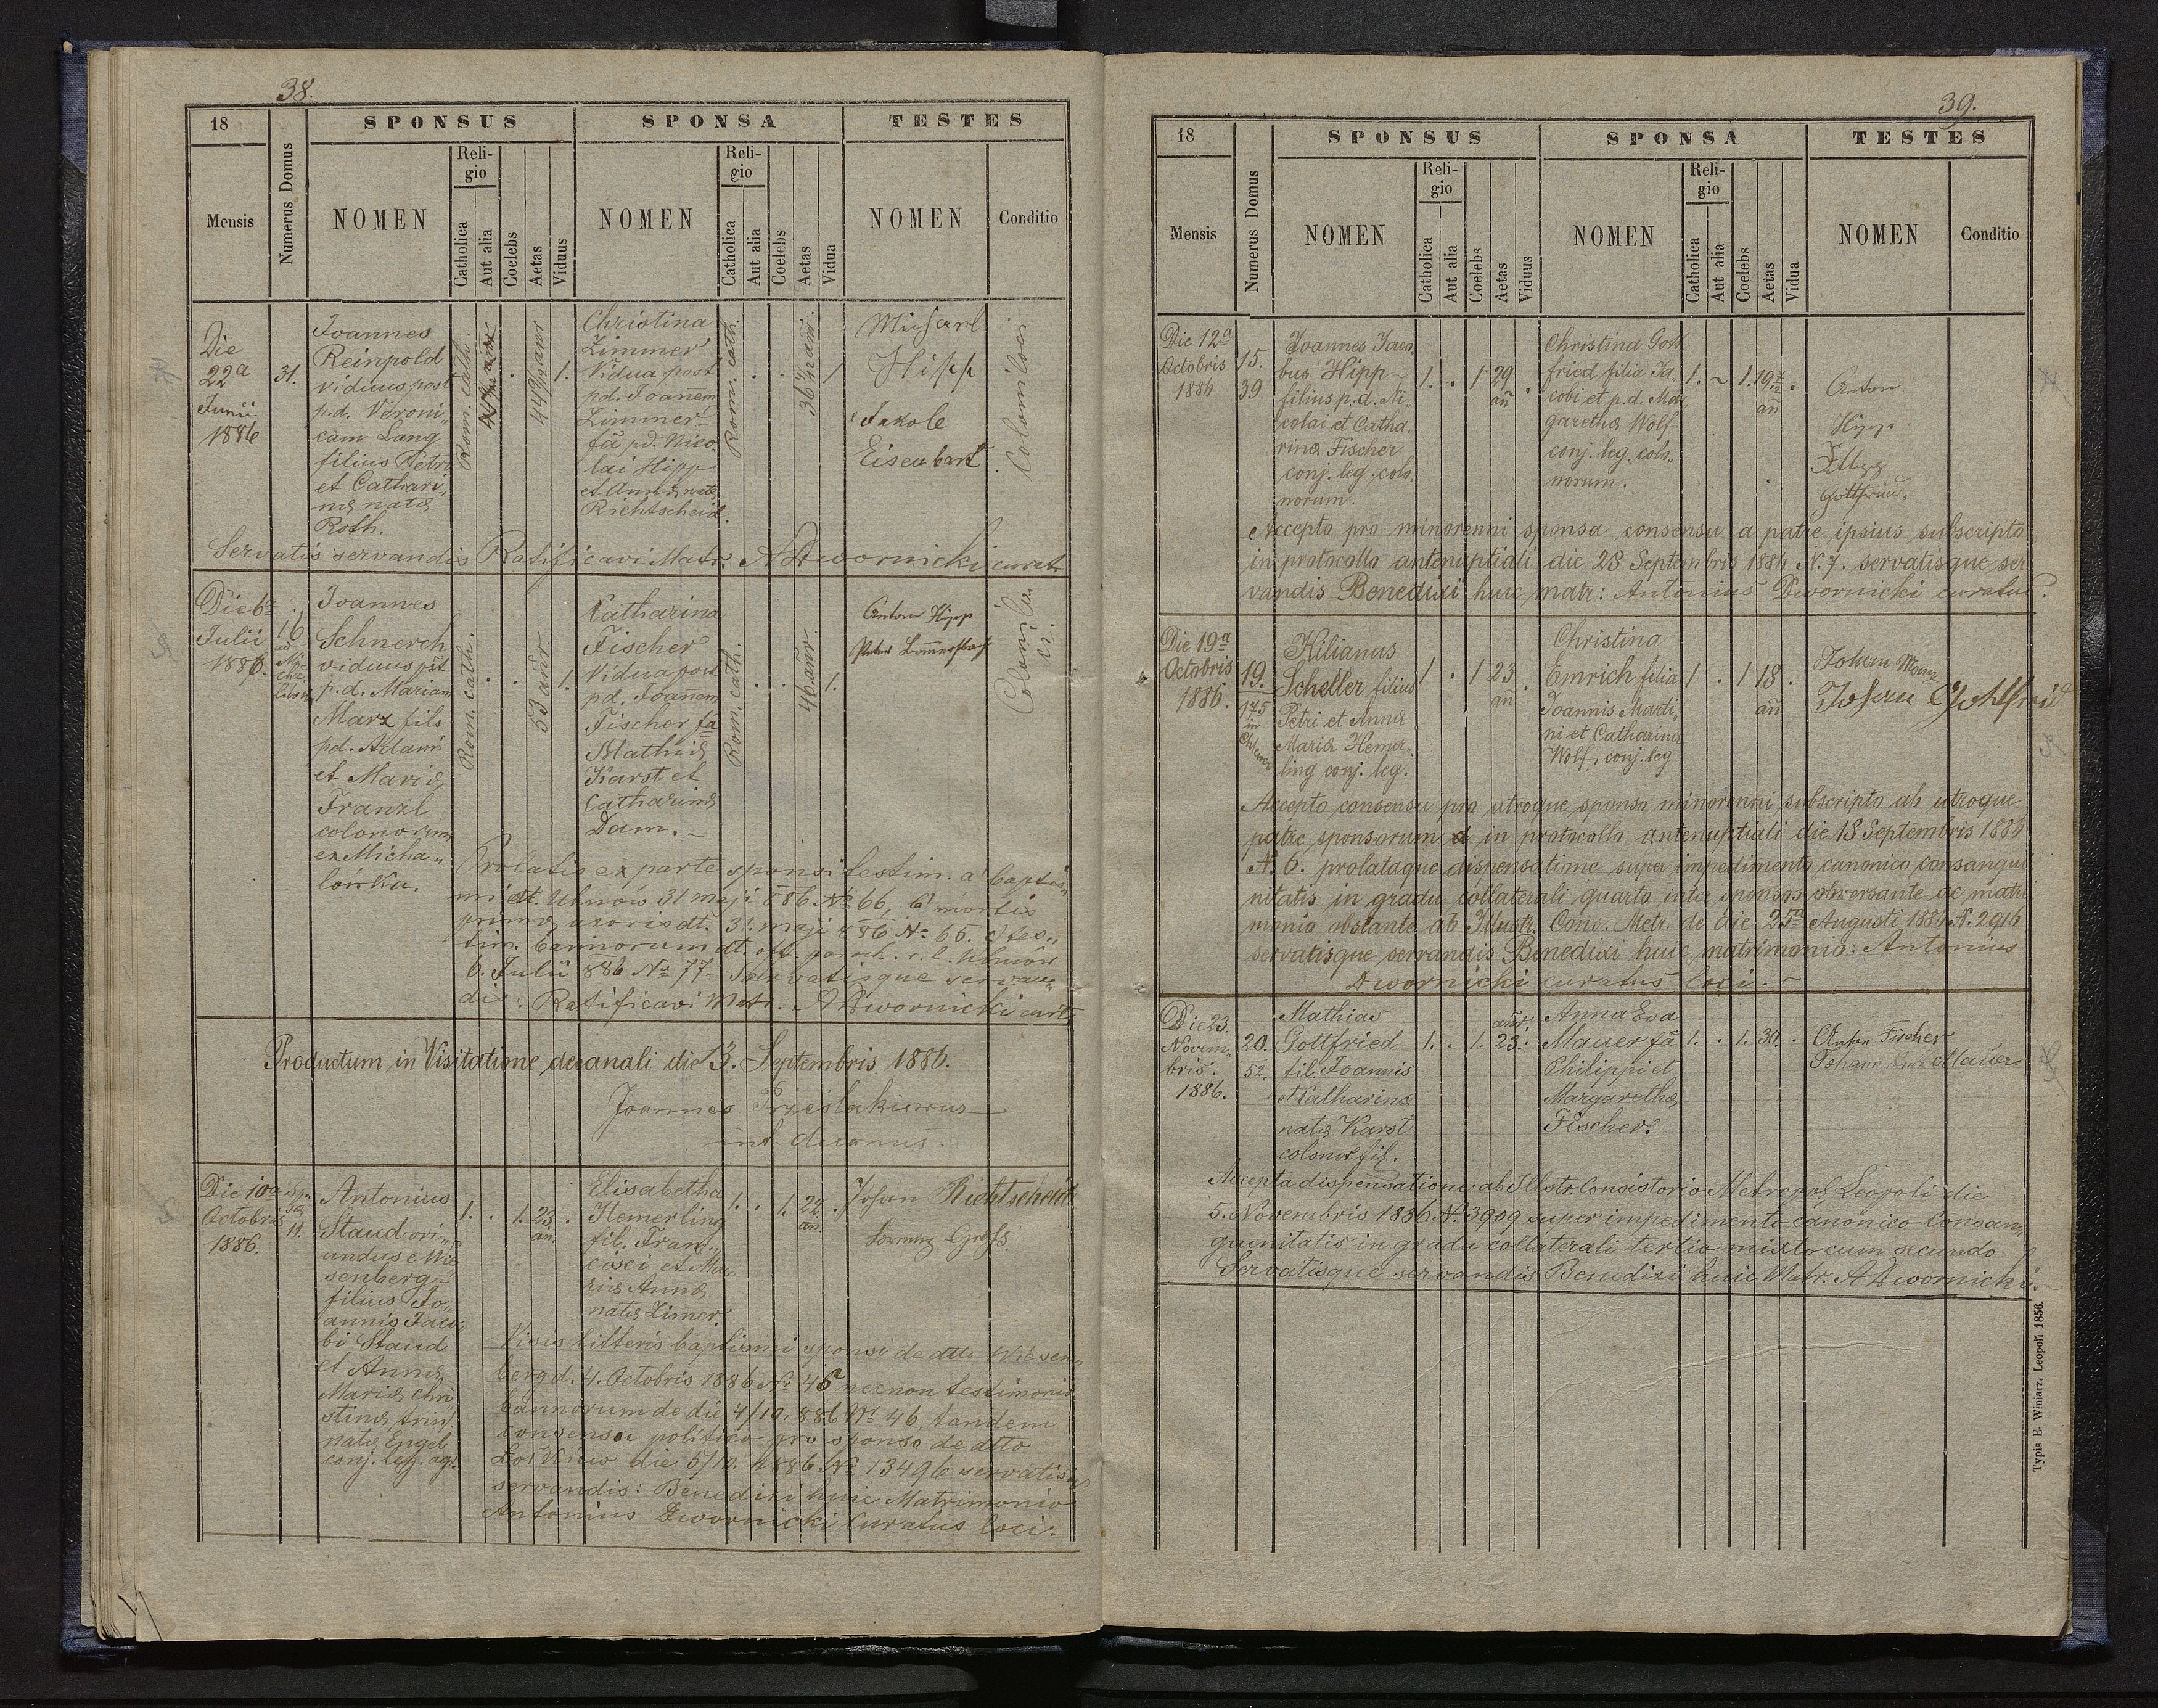 38.
18
Numerus Domus
SPONSUS
SPONSA
TESTES
Mensis
NOMEN
Religio
Catholica
Aut alia
Coelebs
Aetas
Viduus
NOMEN
Religio
Catholica
Aut alia
Coelebs
Aetas
Vidua
NOMEN
Conditio
Die
22a
Junii
1886
31.
Joannes
Reinpold
viduus post
p.d. Veroni„
cam Lang
filius Petri
et Cathari„
næ natæ
Roth.
Rom. cath.
44 9/12 anr
1.
Christina
Zimmer
Vidua post
pd. Joanem
Zimmer
fa pd. Nico„
lai Hipp
et Annæ natæ
Richtscheid.
Rom. cath.
36 1/12 anr.
1
Michael
Hipp
Jakole
Eisenbart
Coloni loci
Servatis servandis Ratificavi Matr. ADwornicki curat
Die 6a
Julii
1886.
16
Joannes
Schnerch
viduus pst
p.d. Mariam
Marx fils
pd. Adami
et Mariæ
Franzl
colonorum
ex Micha„
lówka.
Rom. cath.
53 anr.
1.
Catharina
Fischer
Vidua post
pd. Joanem
Fischer fa
Mathiæ
Karst et
Catharinæ
Dam. –
Rom. cath.
46 anr.
1.
Anton Hipp
Prolatis ex parte sponsi testim. a) baptis„
mi dt. Uhnów 31 maji 886 No 66, b) mortis
primæ uxoris dt. 31. maji 886 No 65. c) tes„
tim. bannorum dt. off. paroch. r. l. Uhnów
6. Julii 886 No 77– Servatisque servan„
dis: Ratificavi Matr. ADwornicki curt
Productum in Visitatione decanali die 3. Septembris 1886.
Joannes
decanus.
Die 10a
Octobris
1886.
11.
Antonius
Staud ori„
undus e Wie
senberg –
filius Jo„
annis Jaco„
bi Staud
et Annæ
Mariæ Chri
stinæ trin.
natæ Engel
conj. leg. agr.
1. . 1. 23. .
an.
Elisabetha
Hemerling
fil. Fran„
cisci et Ma„
riæ Annæ
natæ Zimer.
1. . 1. 22. .
an.
Johan Richtscheid
Lorenz Grofs.
Visis litteris baptismi sponsi de dtto Wiesen„
berg d. 4. Octobris 1886 No 45 necnon testimonio
bannorum de die 4/10. 886 Nr 46, tandem
consensu politico pro sponso de dtto
Żółkiew die 5/10. 1886 No 13496 servatis
servandis: Benedixi huic Matrimonio
Antonius Dwornicki Curatus loci.
39.
18
Numerus Domus
SPONSUS
SPONSA
TESTES
Mensis
NOMEN
Religio
Catholica
Aut alia
Coelebs
Aetas
Viduus
NOMEN
Religio
Catholica
Aut alia
Coelebs
Aetas
Vidua
NOMEN
Conditio
Die 12a
Octobris
1886
15.
39
Joannes Jaco„
bus Hipp –
filius p.d. Ni„
colai et Catha„
rinæ Fischer
conj. leg. colo„
norum.
1. . 1 29
añ
Christina Gott
fried filia Ja„
cobi et p.d. Mar
garethæ Wolf
conj. leg. colo„
norum.
1. ~ 1. 19
añ
Anton
Hipp
Gottfried.
Accepto pro minorenni sponsa consensu a patre ipsius subscripto
in protocollo antenuptiali die 28 Septembris 1886 N. 7. servatisque ser
vandis Benedixi huic matr: Antonius Dwornicki curatus.
Die 19a
Octobris
1886.
19.
175
in
Kilianus
Scheller filius
Petri et Annæ
Mariæ Hemer„
ling conj. leg.
1 . 1 23 .
añ
Christina
Emrich filia
Joannis Marti„
ni et Catharinæ
Wolf, conj. leg
1 . 1 18 .
añ
Johan Manz
Johan Gottfrid
Accepto consensu pro utroque sponso minorenni subscripto ab utroque
patre sponsorum in protocollo antenuptiali die 18 Septembris 1886
N. 6. prolataque dispensatione super impedimento canonico consangui
nitatis in gradu collaterali quarto inter sponsos obversante ac matri
monio obstante ab Illustr. Cons. Metr. de die 25a Augusti 1886 N. 2916
servatisque servandis Benedixi huic matrimonio: Antonius
Dwornicki curatus loci. ~
Die 23.
Novem„
bris.
1886.
20.
52.
Mathias
Gottfried
fil. Joannis
et Catharinæ
natæ Karst
colonor fil.
1. . 1. 23.
Anna Eva
Mauer fa
Philippi et
Margarethæ
Fischer.
1. . 1. 30. .
Anton Fischer
Johann Mauer
Accepta dispensatione ab Illstr. Consistorio Metropol. Leopoli die
5. Novembris 1886 No 3909 super impedimento canonico Consan„
guinitatis in gradu collaterali tertio mixto cum secundo
Servatisque servandis Benedixi huic Matr. ADwornicki.
Typis E. Winiarz, Leopoli 1856.